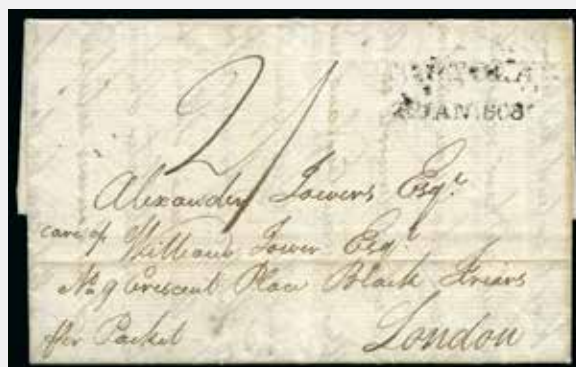 2/
JAN 1808
Alexander Towers Esqr.
care of William Tower Esqr
No. 9 Crescent Place Black Friars
Per Packet London